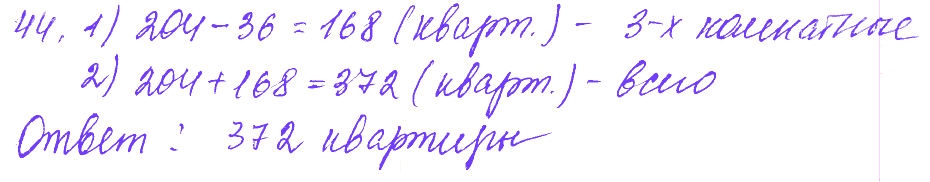 44. 1) 204 - 36 = 168 (кварт.) - 3-х комнатные
2) 204 + 168 = 372 (кварт.) - всего
Ответ: 372 квартиры